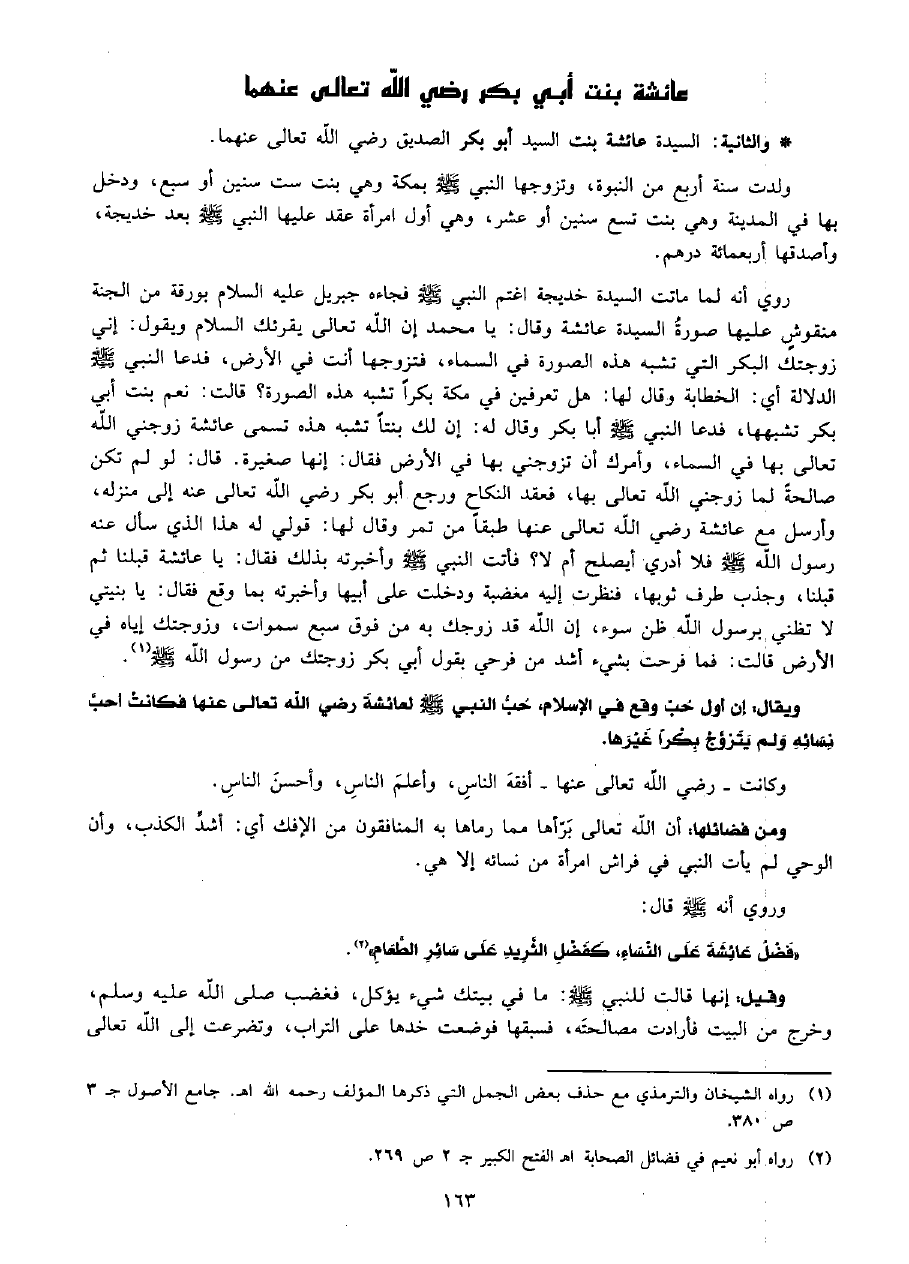 عائشة بنت أبي بكر رضي الله تعالى عنهما
* والثانية: السيدة عائشة بنت السيد أبو بكر الصديق رضي الله تعالى عنهما.
ولدت سنة أربع من النبوة، وتزوجها النبي ﷺ بمكة وهي بنت ست سنين أو سبع، ودخل
بها في المدينة وهي بنت تسع سنين أو عشر، وهي أول امرأة عقد عليها النبي ﷺ بعد خديجة،
وأصدقها أربعمائة درهم.
روي أنه لما ماتت السيدة خديجة اغتم النبي ﷺ فجاءه جبريل عليه السلام بورقة من الجنة
منقوشٍ عليها صورةُ السيدة عائشة وقال: يا محمد إن الله تعالى يقرئك السلام ويقول: إني
زوجتك البكر التي تشبه هذه الصورة في السماء، فتزوجها أنت في الأرض، فدعا النبي ﷺ
الدلالة أي: الخطابة وقال لها: هل تعرفين في مكة بكراً تشبه هذه الصورة؟ قالت: نعم بنت أبي
بكر تشبهها، فدعا النبي ﷺ أبا بكر وقال له: إن لك بنتاً تشبه هذه تسمى عائشة زوجني الله
تعالى بها في السماء، وأمرك أن تزوجني بها في الأرض فقال: إنها صغيرة. قال: لو لم تكن
صالحةً لما زوجني الله تعالى بها، فعقد النكاح ورجع أبو بكر رضي الله تعالى عنه إلى منزله،
وأرسل مع عائشة رضي الله تعالى عنها طبقاً من تمر وقال لها: قولي له هذا الذي سأل عنه
رسول الله ﷺ فلا أدري أيصلح أم لا؟ فأتت النبي ﷺ وأخبرته بذلك فقال: يا عائشة قبلنا ثم
قبلنا، وجذب طرف ثوبها، فنظرت إليه مغضبة ودخلت على أبيها وأخبرته بما وقع فقال: يا بنيتي
لا تظني برسول الله ظن سوء، إن الله قد زوجك به من فوق سبع سموات، وزوجتك إياه في
الأرض قالت: فما فرحت بشيء أشد من فرحي بقول أبي بكر زوجتك من رسول الله ﷺ(١).
ويقال: إن أول حبّ وقع في الإسلام، حبُّ النبي ﷺ لعائشةَ رضي الله تعالى عنها فكانتْ أحبَّ
نِسَائِهِ وَلم يَتَزَوَّجْ بِكْراً غَيْرَها.
وكانت - رضي الله تعالى عنها - أفقهَ الناسِ، وأعلمَ الناسِ، وأحسنَ الناسِ.
ومن فضائلها: أن الله تعالى بَرّأها مما رماها به المنافقون من الإفك أي: أشدِّ الكذب، وأن
الوحي لم يأت النبي في فراش امرأة من نسائه إلا هي.
وروي أنه ﷺ قال:
«فَضْلُ عَائِشَةَ عَلَى النِّسَاءِ، كَفَضْلِ الثَّرِيدِ عَلَى سَائِرِ الطَّعَامِ»(٢).
وقيل: إنها قالت للنبي ﷺ: ما في بيتك شيء يؤكل، فغضب صلى الله عليه وسلم،
وخرج من البيت فأرادت مصالحتَه، فسبقها فوضعت خدها على التراب، وتضرعت إلى الله تعالى
(١) رواه الشيخان والترمذي مع حذف بعض الجمل التي ذكرها المؤلف رحمه الله اهـ. جامع الأصول جـ ٣
ص ٣٨٠.
(٢) رواه أبو نعيم في فضائل الصحابة اهـ الفتح الكبير جـ ٢ ص ٢٦٩.
١٦٣